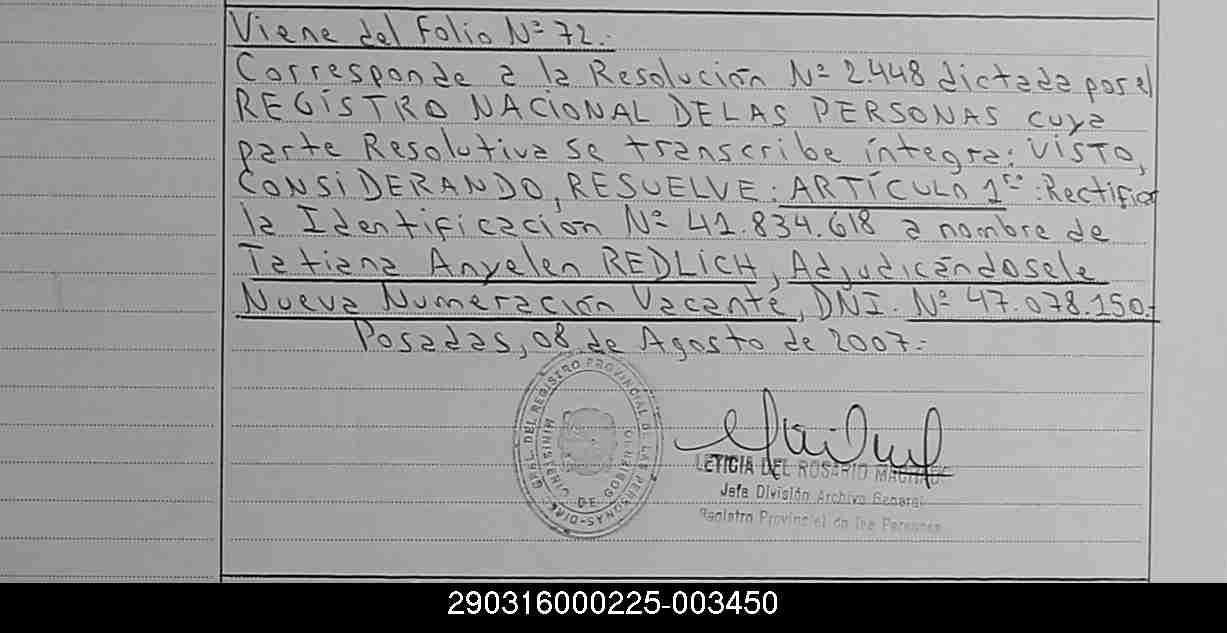 Viene del Folio Nº 72.-
Corresponde a la Resolución Nº 2.448 dictada por el
REGISTRO NACIONAL DE LAS PERSONAS cuya
parte Resolutiva se transcribe íntegra: VISTO,
CONSIDERANDO, RESUELVE: ARTÍCULO 1ro: Rectificar
la Identificación Nº 41.834.618 a nombre de
Tatiana Anyelen REDLICH, Adjudicándosele
Nueva Numeración Vacante, DNI. Nº 47.078.150.-
Posadas, 08 de Agosto de 2007.-
DIREC. GRAL. DEL REGISTRO PROVINCIAL DE LAS PERSONAS
MINISTERIO DE GOBIERNO
LETICIA DEL ROSARIO MACHADO
Jefe División Archivo General
Registro Provincial de las Personas
290316000225-003450